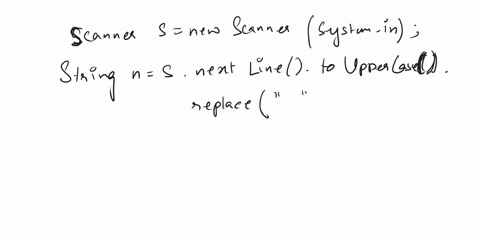 Scanner s = new Scanner (System.in);
String n = s.next Line().to UpperCase().
replace ( " "